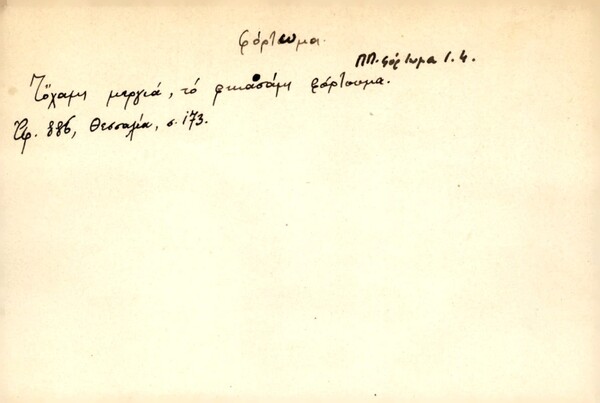 φόρτωμα.
ΠΠ. φόρτωμα 1.4.
Τὄχαμη μεργιά, τό φκιασάμη φόρτουμα.
Ἀρ. 886, Θεσσαλία, σ. 173.